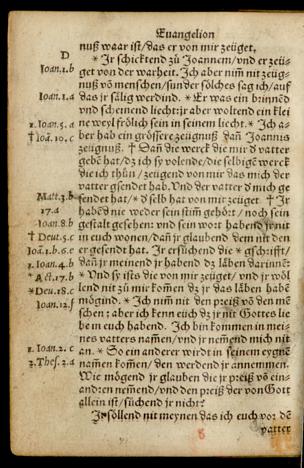 Euangelion
nuß waar ist/das er von mir zeüget.
D
* Jr schicktend zů Joannem/vnd er zeü-
Ioan.1.b
get von der warheit. Jch aber nim̃ nit zeüg-
nuß võ menschen/sunder sölches sag ich/auf
Ioan.1.a
das jr sälig werdind. * Er was ein brinnẽd
vnd scheinend liecht:jr aber woltend ein klei
1.Ioan.5.a
ne weyl frölich sein in seinem liecht. * Jch a-
† Ioã.10.c
ber hab ein grössere zeügnuß dañ Joannis
zeügnuß. † Dañ die werck die mir d vatter
gebẽ hat/dz ich sy volende/die selbigẽ werck
die ich thůn/zeügend von mir das mich der
vatter gsendet hab. Vnd der vatter d mich ge
Matt.3.b
sendet hat/* d selb hat von mir zeüget † Jr
17.a
habẽd nie weder sein stim̃ gehört/noch sein
Ioan.8.b
gestalt gesehen: vnd sein wort habend jr nit
† Deut.5.c
in euch wonen/dañ jr glaubend dem nit den
Ioã.1.b.6.e
er gesendt hat. Jr ersůchend die * gschrifft/
Ioan.4.b
dañ jr meinend jr habend dz läben drinnẽ:
* Act.17.b
* Vnd sy ists die von mir zeüget/vnd jr wöl
*Deu.18.c
lend nit zů mir kom̃en dz jr das läben habẽ
Ioan.12.f
mögind. * Jch nim̃ nit den preiß võ den mẽ
schen; aber ich kenn eüch dz jr nit Gottes lie
be in euch habend. Jch bin kommen in mei-
nes vatters nam̃en/vnd jr nem̃ed mich nit
1.Ioan.2.c
an. * So ein anderer wirdt in seinem eygnẽ
2.Thes.2.a
namen kom̃en/den werdend jr annemmen.
Wie mögend jr glauben die jr preiß võ ein-
andren nem̃end/vnd den preiß der von Gott
allein ist/sůchend jr nicht?
Jr söllend nit meynen das ich euch vor dẽ
vatter